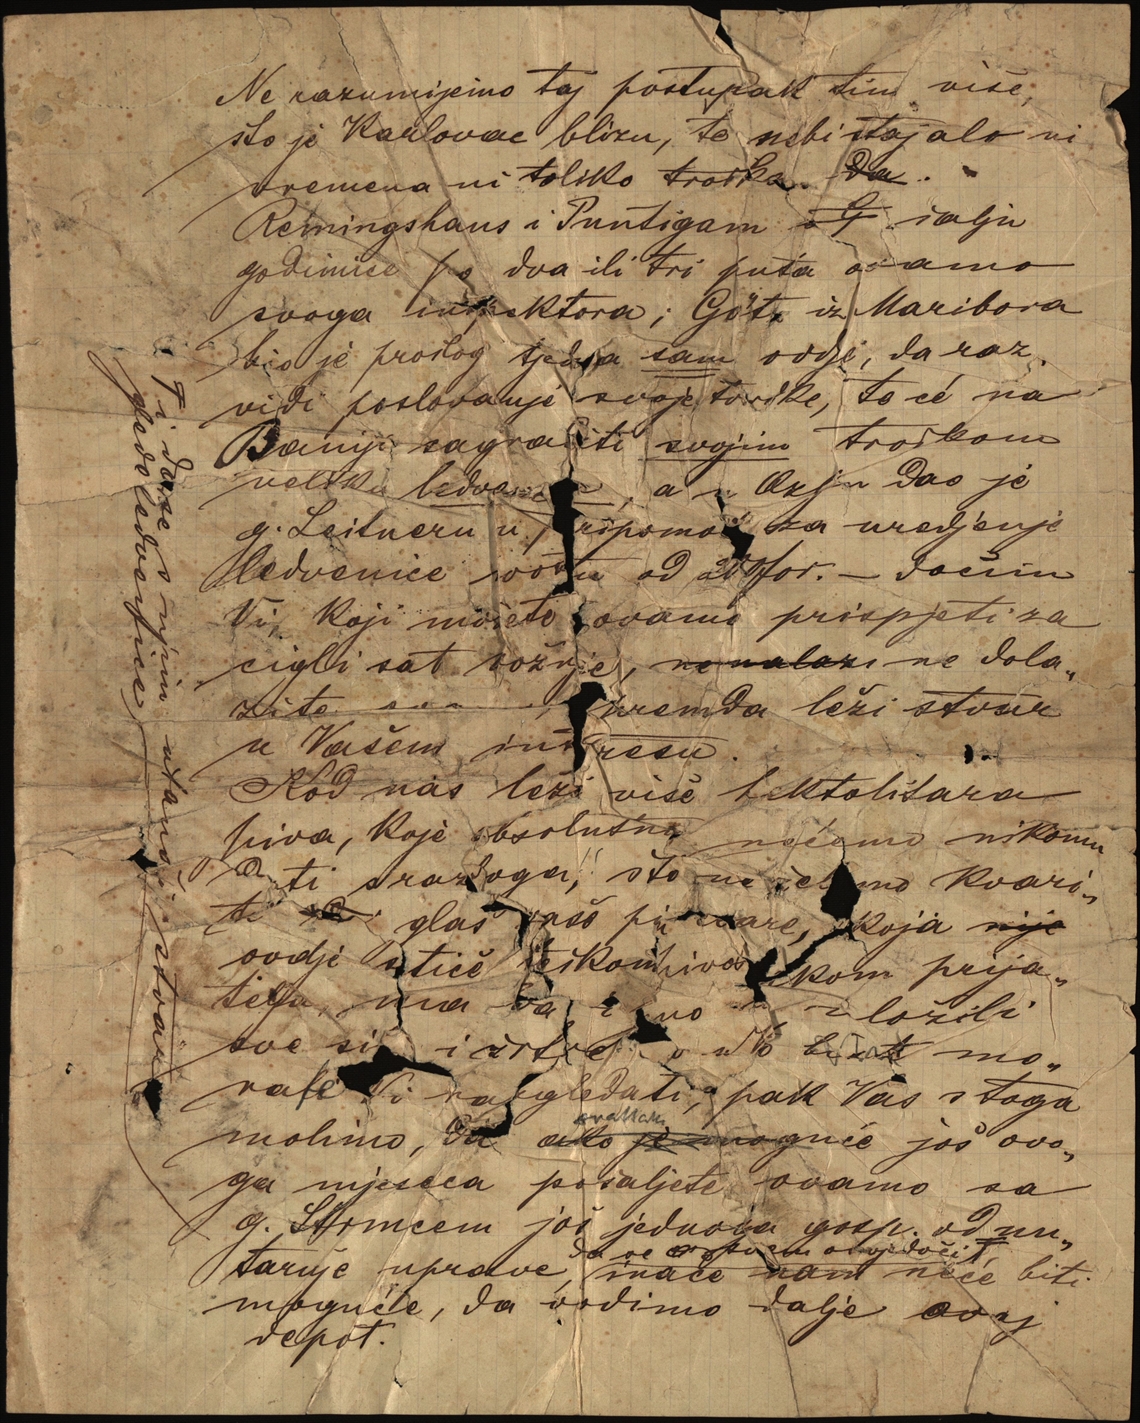 Ne razumijemo taj postupak tim više,
što je Karlovac blizu, te nebi stajalo ni
vremena ni toliko troška. Da.
Reiningshaus i Puntigam šalju
godimice po dva ili tri puta ovamo
svoga inspektora; Götz iz Maribora
bio je prošlog tjedna sam ovdje, da raz
vidi poslovanje svoje tvrdke, te će na
Baniji sagraditi svojim troškom
veliku ledvenicu, a u Ozlju dao je
g. Leitneru u pripomoć za uredjenje
ledvenice svotu od 200 for. — dočim
Vi, koji možete ovamo prispjeti za
cigli sat vožnje, ne nalazi ne dola„
zite ovamo, premda leži stvar
u Vašem interesu.
Kod nas leži više hektolitara
piva, koje absolutno nećemo nikomu
dati s razloga, što ne želimo kvari„
ti glas vaše pivovare, koja nije
ovdje stiče
kom prija„
telju, ma da uložili
sve sile i žrtve mo„
rate Vi nadgledati, pak Vas s toga
molimo, da
svakako
ako je moguće još ovo„
ga mjeseca pošaljete ovamo sa
g. Strmcem još jednoga gosp. od nu„
da se o svem osvjedoči
tarnje uprave, inače nam neće biti
moguće, da vodimo dalje ovaj
depot.
Ti da se s njim ustanovi stvar
gledo ledvenice,